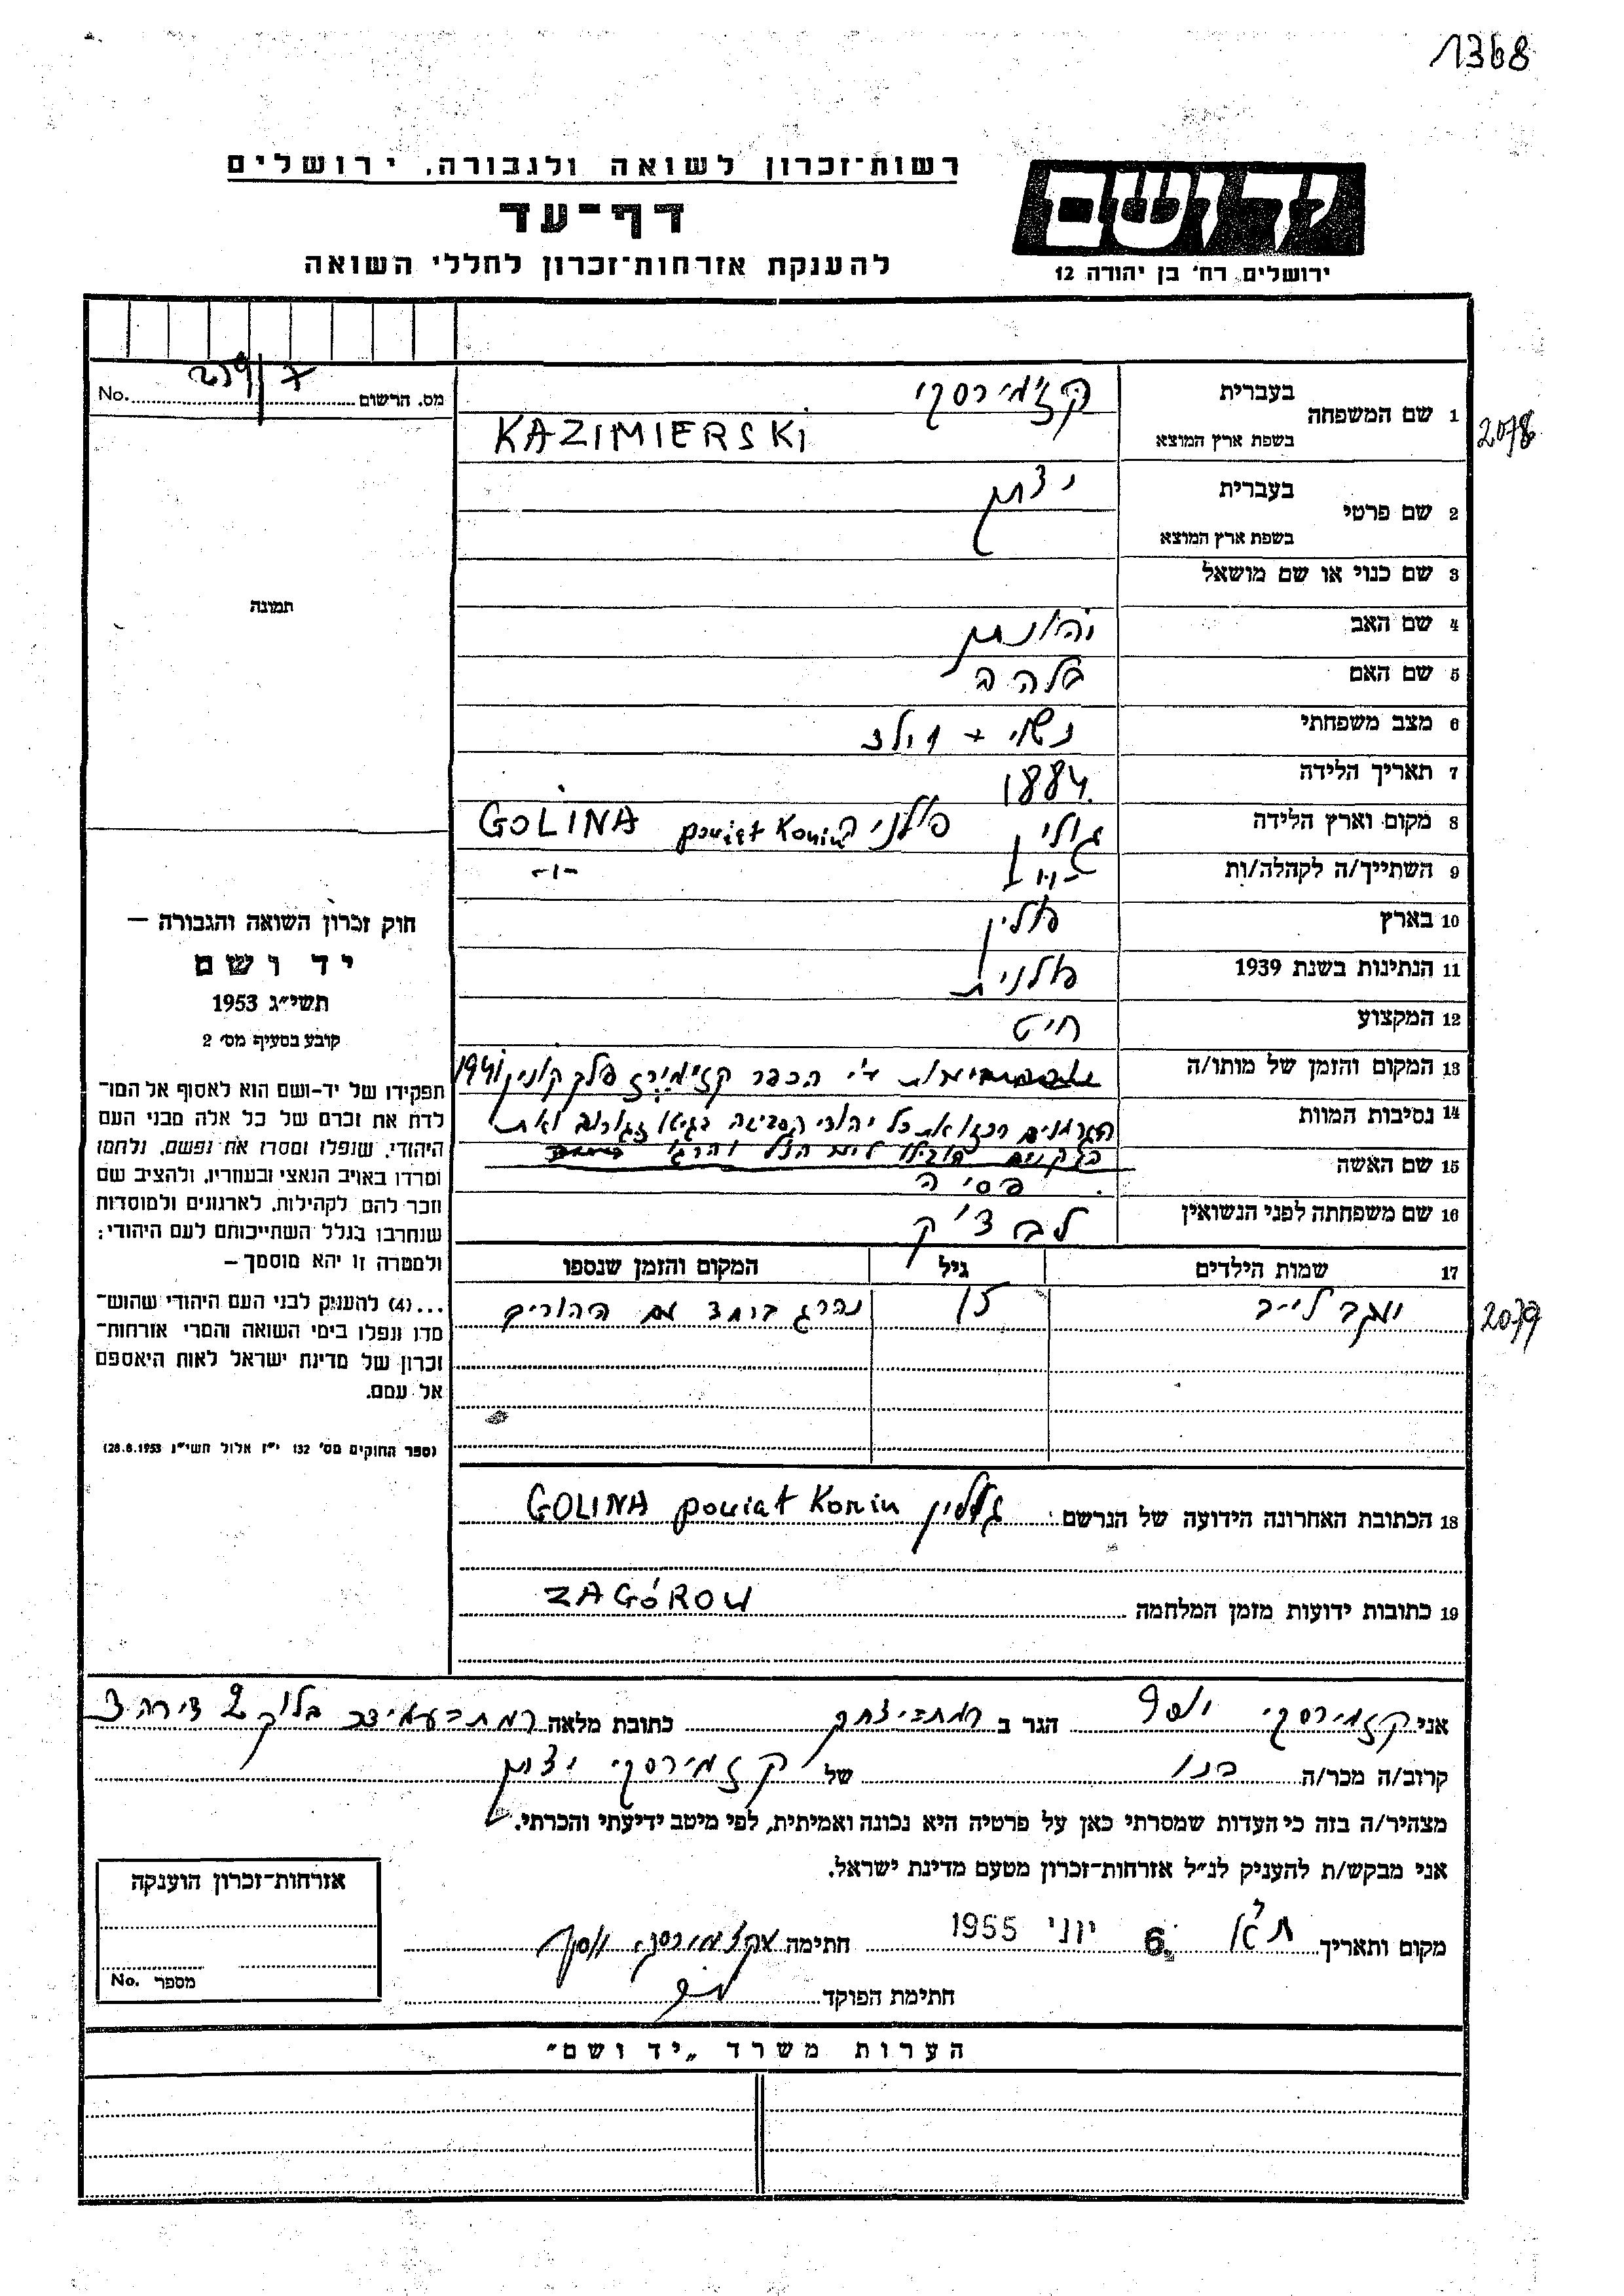 1368
רשות־זכרון לשואה ולגבורה, ירושלים
יד ושם
דף־עד
להענקת אזרחות־זכרון לחללי השואה
ירושלים, רח' בן יהודה 12
מס. הרשום No.
1 שם המשפחה בעברית קז'מירסקי
2078
בשפת ארץ המוצא KAZIMIERSKI
2 שם פרטי בעברית יצחק
בשפת ארץ המוצא
3 שם כנוי או שם מושאל
תמונה
4 שם האב יהונתן
5 שם האם בלהה
6 מצב משפחתי נשוי + 1 ילד
7 תאריך הלידה 1884
8 מקום וארץ הלידה גולין פולניה powiat Konin GOLINA
9 השתייך/ה לקהלה/ות -"- -"-
10 בארץ פולין
11 הנתינות בשנת 1939 פולנית
12 המקצוע חיט
13 המקום והזמן של מותו/ה ע"י הכפר קזימירז פלך קונין 1941
14 נסיבות המוות הגרמנים רכזו את כל יהודי הסביבה בגיטו זגורוב ואת
הזקנים הובילו ליער הנ"ל והרגו
15 שם האשה פסיה
16 שם משפחתה לפני הנשואין לבצ'ק
17 שמות הילדים גיל המקום והזמן שנספו
יעקב לייב 15 נהרג ביחד עם ההורים
2079
חוק זכרון השואה והגבורה —
יד ושם
תשי״ג 1953
קובע בסעיף מס׳ 2
תפקידו של יד-ושם הוא לאסוף אל המו־
לדת את זכרם של כל אלה מבני העם
היהודי, שנפלו ומסרו את נפשם, נלחמו
ומרדו באויב הנאצי ובעוזריו, ולהציב שם
וזכר להם לקהילות, לארגונים ולמוסדות
שנחרבו בגלל השתייכותם לעם היהודי;
ולמטרה זו יהא מוסמך —
...(4) להעניק לבני העם היהודי שהוש־
מדו ונפלו בימי השואה והמרי אזרחות־
זכרון של מדינת ישראל לאות היאספם
אל עמם.
(ספר החוקים מס׳ 132 י״ז אלול תשי״ג 28.8.1953)
18 הכתובת האחרונה הידועה של הנרשם: גולין GOLINA powiat Konin
19 כתובות ידועות מזמן המלחמה ZAGÓROW
אני קזמירסקי יוסף הגר ב רמת יצחק כתובת מלאה רמת בלוק 2 דירה 3
קרוב/ה מכר/ה בנו של קזמירסקי יצחק
מצהיר/ה בזה כי העדות שמסרתי כאן על פרטיה היא נכונה ואמיתית, לפי מיטב ידיעתי והכרתי.
אני מבקש/ת להעניק לנ״ל אזרחות־זכרון מטעם מדינת ישראל.
מקום ותאריך ת"א 6. יוני 1955 חתימה קזמירסקי יוסף
חתימת הפוקד
אזרחות־זכרון הוענקה
מספר No.
הערות משרד „יד ושם״